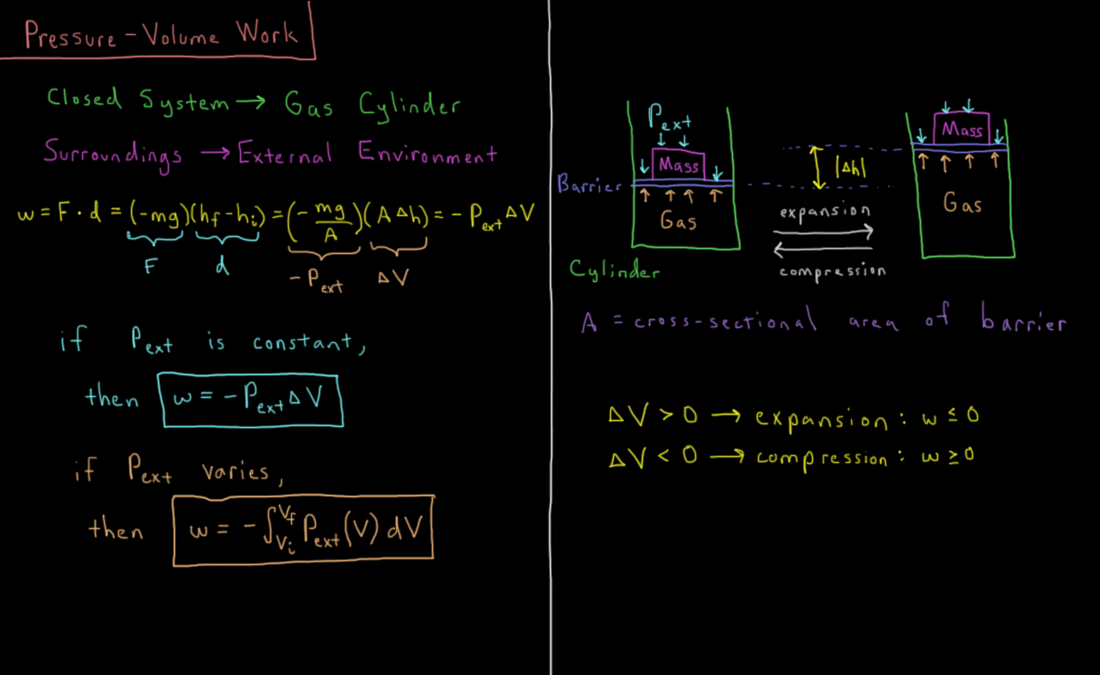 Pressure-Volume Work
Closed System → Gas Cylinder
Surroundings → External Environment
w = F · d = (-mg)(h_f - h_i) = (-mg/A)(A Δh) = - P_ext ΔV
F d -P_ext ΔV
if P_ext is constant,
then w = -P_ext ΔV
if P_ext varies,
then w = -∫_{V_i}^{V_f} P_ext(V) dV
P_ext
Mass
Barrier
Gas
Cylinder
|Δh|
expansion
compression
Mass
Gas
A = cross-sectional area of barrier
ΔV > 0 → expansion : w ≤ 0
ΔV < 0 → compression : w ≥ 0